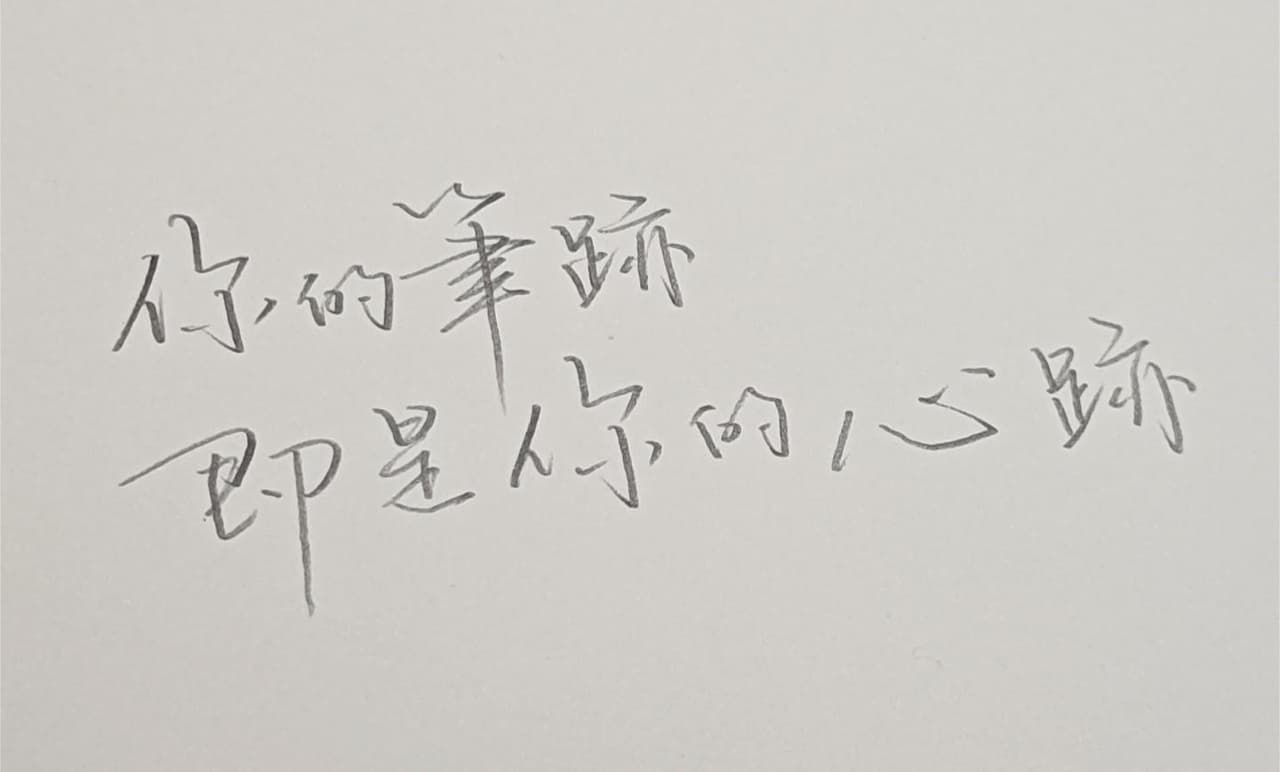 你的筆跡
即是你的心跡